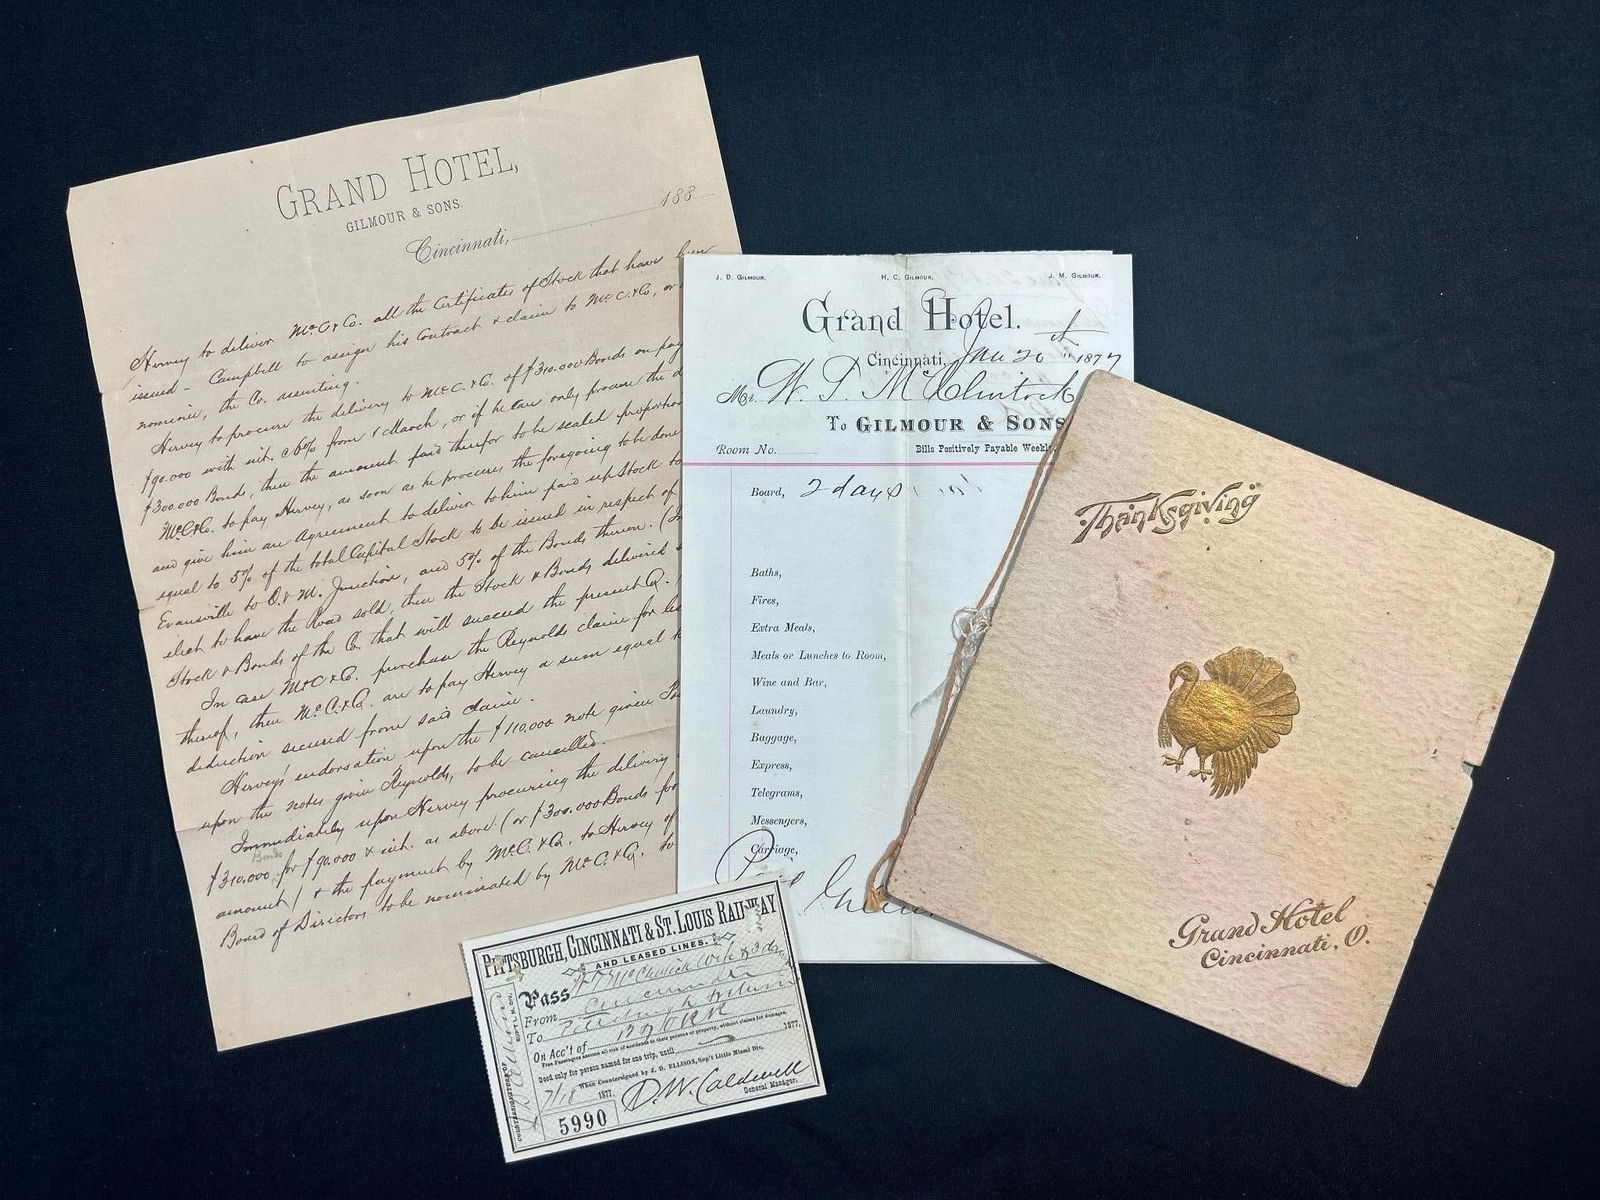 GRAND HOTEL,
GILMOUR & SONS.
Cincinnati, 188
Hervey to deliver McC & Co. all the Certificates of Stock that have been
issued - Campbell to assign his Contract & claim to McC. & Co, or
nominee, the Co. assenting.
Hervey to procure the delivery to McC. & Co. of $310.000 Bonds on pay
$90.000 with int. 6% from 1 March, or if he can only procure the d
$300.000 Bonds, then the amount paid therefor to be scaled proportion
McC & Co. to pay Hervey, as soon as he procures the foregoing to be done
and give him an Agreement to deliver to him paid up Stock to
equal to 5% of the total Capital Stock to be issued in respect of
Evansville to O. & M. Junction, and 5% of the Bonds thereon. (In
elect to have the Road sold, then the Stock & Bonds delivered
Stock & Bonds of the Co. that will succeed the present Co.
In case McC & Co. purchase the Reynolds claim for les
thereof, then McC. & Co. are to pay Hervey a sum equal t
deduction secured from said claim.
Hervey's endorsation upon the $110,000 note given
upon the notes given Reynolds, to be cancelled.
Immediately upon Hervey procuring the delivery
Bonds
$310.000 for $90.000 & int. as above (or $300.000 Bonds for
amount) & the payment by McC. & Co. to Hervey of
Board of Directors to be nominated by McC. & Co. to
J. D. GILMOUR. H. C. GILMOUR. J. M. GILMOUR.
Grand Hotel.
Cincinnati, Jan 20th 1877
Mr. W. S. McClintock
To GILMOUR & SONS
Room No. Bills Positively Payable Weekl
Board, 2 days
Baths,
Fires,
Extra Meals,
Meals or Lunches to Room,
Wine and Bar,
Laundry,
Baggage,
Express,
Telegrams,
Messengers,
Carriage,
PITTSBURGH, CINCINNATI & ST. LOUIS RAILWAY
AND LEASED LINES.
Pass McClintock wife &
From Cincinnati
To Pittsburgh & return
On Acc't of
Free Passengers assume all risk of accidents to their persons or property, without claims for damages.
Good only for person named for one trip, until 1877.
When Countersigned by J. D. ELLISON, Sup't Little Miami Div.
7/18 1877. D. W. Caldwell
General Manager.
5990
COUNTERSIGNATURE OF
Thanksgiving
Grand Hotel
Cincinnati, O.